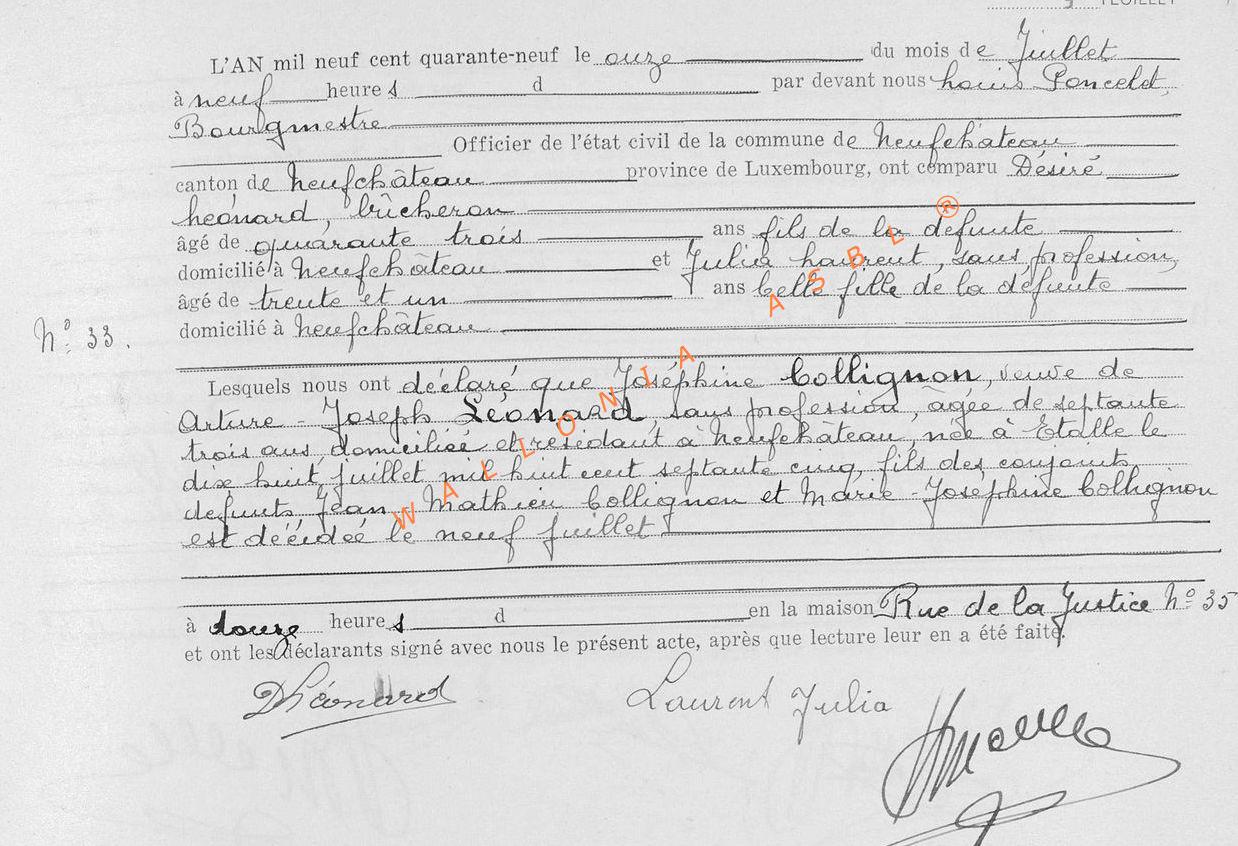 FEUILLET
L'AN mil neuf cent quarante-neuf le onze du mois de Juillet
à neuf heures d par devant nous Louis Poncelet,
Bourgmestre
Officier de l'état civil de la commune de Neufchâteau
canton de Neufchâteau province de Luxembourg, ont comparu Désiré
Léonard, bûcheron
âgé de quarante trois ans fils de la défunte
domicilié à Neufchâteau et Julia Laurent, sans profession,
âgé de trente et un ans belle fille de la défunte
domicilié à Neufchâteau
N° 33.
Lesquels nous ont déclaré que Joséphine Collignon, veuve de
Arture - Joseph Léonard, sans profession, agée de septante
trois ans, domiciliée et résidant à Neufchâteau, née à Etalle le
dix huit, juillet mil huit cent septante cinq, fils des conjoints
defunts Jean Mathieu Collignon et Marie - Joséphine Collignon
est décédée le neuf juillet
à douze heures d en la maison Rue de la Justice N° 35
et ont les déclarants signé avec nous le présent acte, après que lecture leur en a été faite.
DLéonard Laurent Julia
WALLONIA ASBL ®